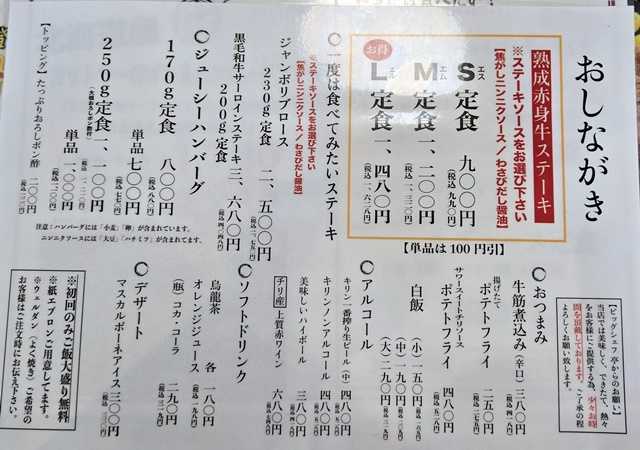 おしながき
熟成赤身牛ステーキ
※ステーキソースをお選び下さい
【焦がしニンニクソース/わさびだし醤油】
エス
S定食 九〇〇円
(税込 九九〇円)
エム
M定食 一、二〇〇円
(税込 一、三二〇円)
お得
エル
L定食 一、四八〇円
(税込 一、六二八円)
【単品は100円引】
〇一度は食べてみたいステーキ
※ステーキソースをお選び下さい
【焦がしニンニクソース/わさびだし醤油】
ジャンボリブロース
230g定食 二、五〇〇円
(税込 二、七五〇円)
黒毛和牛サーロインステーキ
200g定食 三、六八〇円
(税込 四、〇四八円)
〇ジューシーハンバーグ
170g定食 八〇〇円
(税込 八八〇円)
単品 七〇〇円
(税込 七七〇円)
250g定食 一、一〇〇円
(大根おろしポン酢付)
(税込 一、二一〇円)
単品 一、〇〇〇円
(税込 一、一〇〇円)
【トッピング】たっぷりおろしポン酢 二〇〇円
(税込 二二〇円)
注意:ハンバーグには「小麦」「卵」が含まれています。
ニンニクソースには「大豆」「ハチミツ」が含まれてます。
【ビッグシェフ亭からのお願い】
当店では美味しく、できたて、熱々
をお客様にご提供する為、少々お時
間を頂戴しております。ご了承の程
よろしくお願い致します。
〇おつまみ
牛筋煮込み(辛口) 三八〇円
(税込 四一八円)
揚げたて
ポテトフライ 二五〇円
(税込 二七五円)
サワースイートチリソース
ポテトフライ 四八〇円
(税込 五二八円)
白飯 (小)一五〇円
(中)一九〇円
(大)二九〇円
(税込 三一九円)
〇アルコール
キリン一番搾り生ビール(中) 四八〇円
キリンノンアルコール 四八〇円
美味しいハイボール 三八〇円
チリ産 上質赤ワイン 四八〇円
〇ソフトドリンク
烏龍茶
オレンジジュース 各 一八〇円
(税込 一九八円)
(瓶)コカ・コーラ 二九〇円
(税込 三一九円)
〇デザート
マスカルポーネアイス 三〇〇円
(税込 三三〇円)
※初回のみご飯大盛り無料
※紙エプロンご用意してます。
※ウェルダン(よく焼き)ご希望の
お客様はご注文時にお伝え下さい。